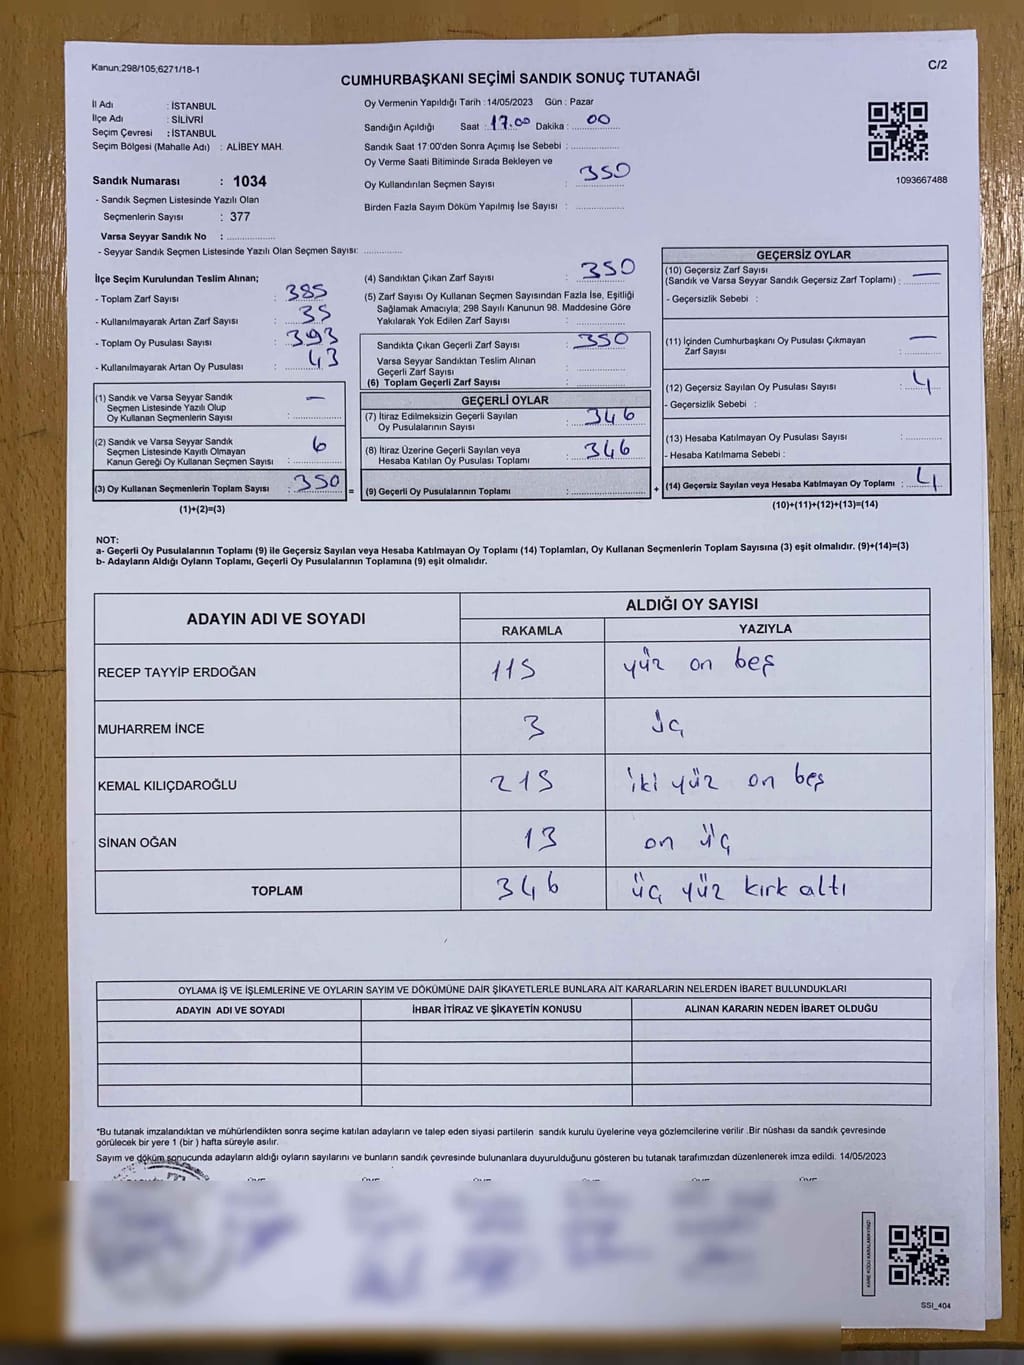 Kanun:298/105,6271/18-1
C/2
CUMHURBAŞKANI SEÇİMİ SANDIK SONUÇ TUTANAĞI
İl Adı : İSTANBUL
İlçe Adı : SİLİVRİ
Seçim Çevresi : İSTANBUL
Seçim Bölgesi (Mahalle Adı) : ALİBEY MAH.
Sandık Numarası : 1034
- Sandık Seçmen Listesinde Yazılı Olan
Seçmenlerin Sayısı : 377
Varsa Seyyar Sandık No :
- Seyyar Sandık Seçmen Listesinde Yazılı Olan Seçmen Sayısı:
Oy Vermenin Yapıldığı Tarih :14/05/2023 Gün : Pazar
Sandığın Açıldığı Saat : 17.00 Dakika : 00
Sandık Saat 17:00'den Sonra Açımış İse Sebebi :
Oy Verme Saati Bitiminde Sırada Bekleyen ve
Oy Kullandırılan Seçmen Sayısı : 350
Birden Fazla Sayım Döküm Yapılmış İse Sayısı :
1093667488
İlçe Seçim Kurulundan Teslim Alınan;
- Toplam Zarf Sayısı : 385
- Kullanılmayarak Artan Zarf Sayısı : 35
- Toplam Oy Pusulası Sayısı : 393
- Kullanılmayarak Artan Oy Pusulası : 43
(1) Sandık ve Varsa Seyyar Sandık
Seçmen Listesinde Yazılı Olup
Oy Kullanan Seçmenlerin Sayısı : —
(2) Sandık ve Varsa Seyyar Sandık
Seçmen Listesinde Kayıtlı Olmayan
Kanun Gereği Oy Kullanan Seçmen Sayısı : 6
(3) Oy Kullanan Seçmenlerin Toplam Sayısı : 350 =
(1)+(2)=(3)
(4) Sandıktan Çıkan Zarf Sayısı : 350
(5) Zarf Sayısı Oy Kullanan Seçmen Sayısından Fazla İse, Eşitliği
Sağlamak Amacıyla; 298 Sayılı Kanunun 98. Maddesine Göre
Yakılarak Yok Edilen Zarf Sayısı :
Sandıkta Çıkan Geçerli Zarf Sayısı : 350
Varsa Seyyar Sandıktan Teslim Alınan
Geçerli Zarf Sayısı :
(6) Toplam Geçerli Zarf Sayısı :
GEÇERLİ OYLAR
(7) İtiraz Edilmeksizin Geçerli Sayılan
Oy Pusulalarının Sayısı : 346
(8) İtiraz Üzerine Geçerli Sayılan veya
Hesaba Katılan Oy Pusulası Toplamı : 346
(9) Geçerli Oy Pusulalarının Toplamı : +
GEÇERSİZ OYLAR
(10) Geçersiz Zarf Sayısı
(Sandık ve Varsa Seyyar Sandık Geçersiz Zarf Toplamı) : —
- Geçersizlik Sebebi :
(11) İçinden Cumhurbaşkanı Oy Pusulası Çıkmayan
Zarf Sayısı : —
(12) Geçersiz Sayılan Oy Pusulası Sayısı : 4
- Geçersizlik Sebebi :
(13) Hesaba Katılmayan Oy Pusulası Sayısı :
- Hesaba Katılmama Sebebi :
(14) Geçersiz Sayılan veya Hesaba Katılmayan Oy Toplamı : 4
(10)+(11)+(12)+(13)=(14)
NOT:
a- Geçerli Oy Pusulalarının Toplamı (9) ile Geçersiz Sayılan veya Hesaba Katılmayan Oy Toplamı (14) Toplamları, Oy Kullanan Seçmenlerin Toplam Sayısına (3) eşit olmalıdır. (9)+(14)=(3)
b- Adayların Aldığı Oyların Toplamı, Geçerli Oy Pusulalarının Toplamına (9) eşit olmalıdır.
ADAYIN ADI VE SOYADI
ALDIĞI OY SAYISI
RAKAMLA YAZIYLA
RECEP TAYYİP ERDOĞAN 115 yüz on beş
MUHARREM İNCE 3 üç
KEMAL KILIÇDAROĞLU 215 iki yüz on beş
SİNAN OĞAN 13 on üç
TOPLAM 346 üç yüz kırk altı
OYLAMA İŞ VE İŞLEMLERİNE VE OYLARIN SAYIM VE DÖKÜMÜNE DAİR ŞİKAYETLERLE BUNLARA AİT KARARLARIN NELERDEN İBARET BULUNDUKLARI
ADAYIN ADI VE SOYADI İHBAR İTİRAZ VE ŞİKAYETİN KONUSU ALINAN KARARIN NEDEN İBARET OLDUĞU
*Bu tutanak imzalandıktan ve mühürlendikten sonra seçime katılan adayların ve talep eden siyasi partilerin sandık kurulu üyelerine veya gözlemcilerine verilir .Bir nüshası da sandık çevresinde
görülecek bir yere 1 (bir ) hafta süreyle asılır.
Sayım ve döküm sonucunda adayların aldığı oyların sayılarını ve bunların sandık çevresinde bulunanlara duyurulduğunu gösteren bu tutanak tarafımızdan düzenlenerek imza edildi. 14/05/2023
SSI_404